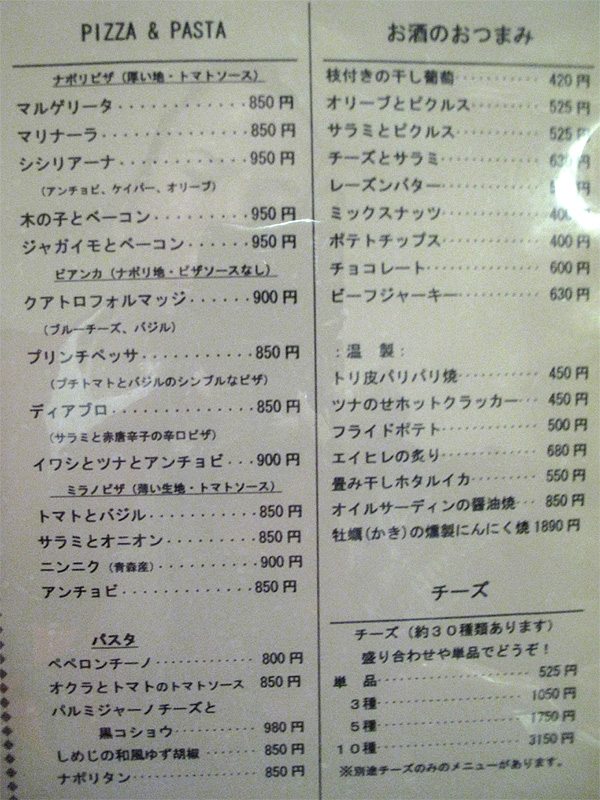 PIZZA & PASTA
ナポリピザ（厚い地・トマトソース）
マルゲリータ・・・・・・・・・・・850円
マリナーラ・・・・・・・・・・・・850円
シシリアーナ・・・・・・・・・・・950円
（アンチョビ、ケイパー、オリーブ）
木の子とベーコン・・・・・・・・950円
ジャガイモとベーコン・・・・・・950円
ビアンカ（ナポリ地・ピザソースなし）
クアトロフォルマッジ・・・・・・900円
（ブルーチーズ、バジル）
プリンチペッサ・・・・・・・・・・850円
（プチトマトとバジルのシンプルなピザ）
ディアブロ・・・・・・・・・・・・850円
（サラミと赤唐辛子の辛口ピザ）
イワシとツナとアンチョビ・・・900円
ミラノピザ（薄い生地・トマトソース）
トマトとバジル・・・・・・・・・・850円
サラミとオニオン・・・・・・・・・850円
ニンニク（青森産）・・・・・・・・900円
アンチョビ・・・・・・・・・・・・850円
パスタ
ペペロンチーノ・・・・・・・・・・800円
オクラとトマトのトマトソース 850円
パルミジャーノチーズと
黒コショウ・・・・・・・・・・980円
しめじの和風ゆず胡椒・・・・・・850円
ナポリタン・・・・・・・・・・・・850円
お酒のおつまみ
枝付きの干し葡萄・・・・・・・・・420円
オリーブとピクルス・・・・・・・・525円
サラミとピクルス・・・・・・・・・525円
チーズとサラミ・・・・・・・・・・63
レーズンバター・・・・・・・・・・
ミックスナッツ・・・・・・・・・・400
ポテトチップス・・・・・・・・・・400円
チョコレート・・・・・・・・・・・600円
ビーフジャーキー・・・・・・・・・630円
：温 製：
トリ皮パリパリ焼・・・・・・・・・450円
ツナのせホットクラッカー・・・450円
フライドポテト・・・・・・・・・・500円
エイヒレの炙り・・・・・・・・・・680円
畳み干しホタルイカ・・・・・・・・550円
オイルサーディンの醤油焼・・・850円
牡蠣(かき)の燻製にんにく焼 1890円
チーズ
チーズ（約３０種類あります）
盛り合わせや単品でどうぞ！
単 品・・・・・・・・・・・・・・525円
３種・・・・・・・・・・・・・・1050円
５種・・・・・・・・・・・・・・1750円
１０種・・・・・・・・・・・・・・3150円
※別途チーズのみのメニューがあります。